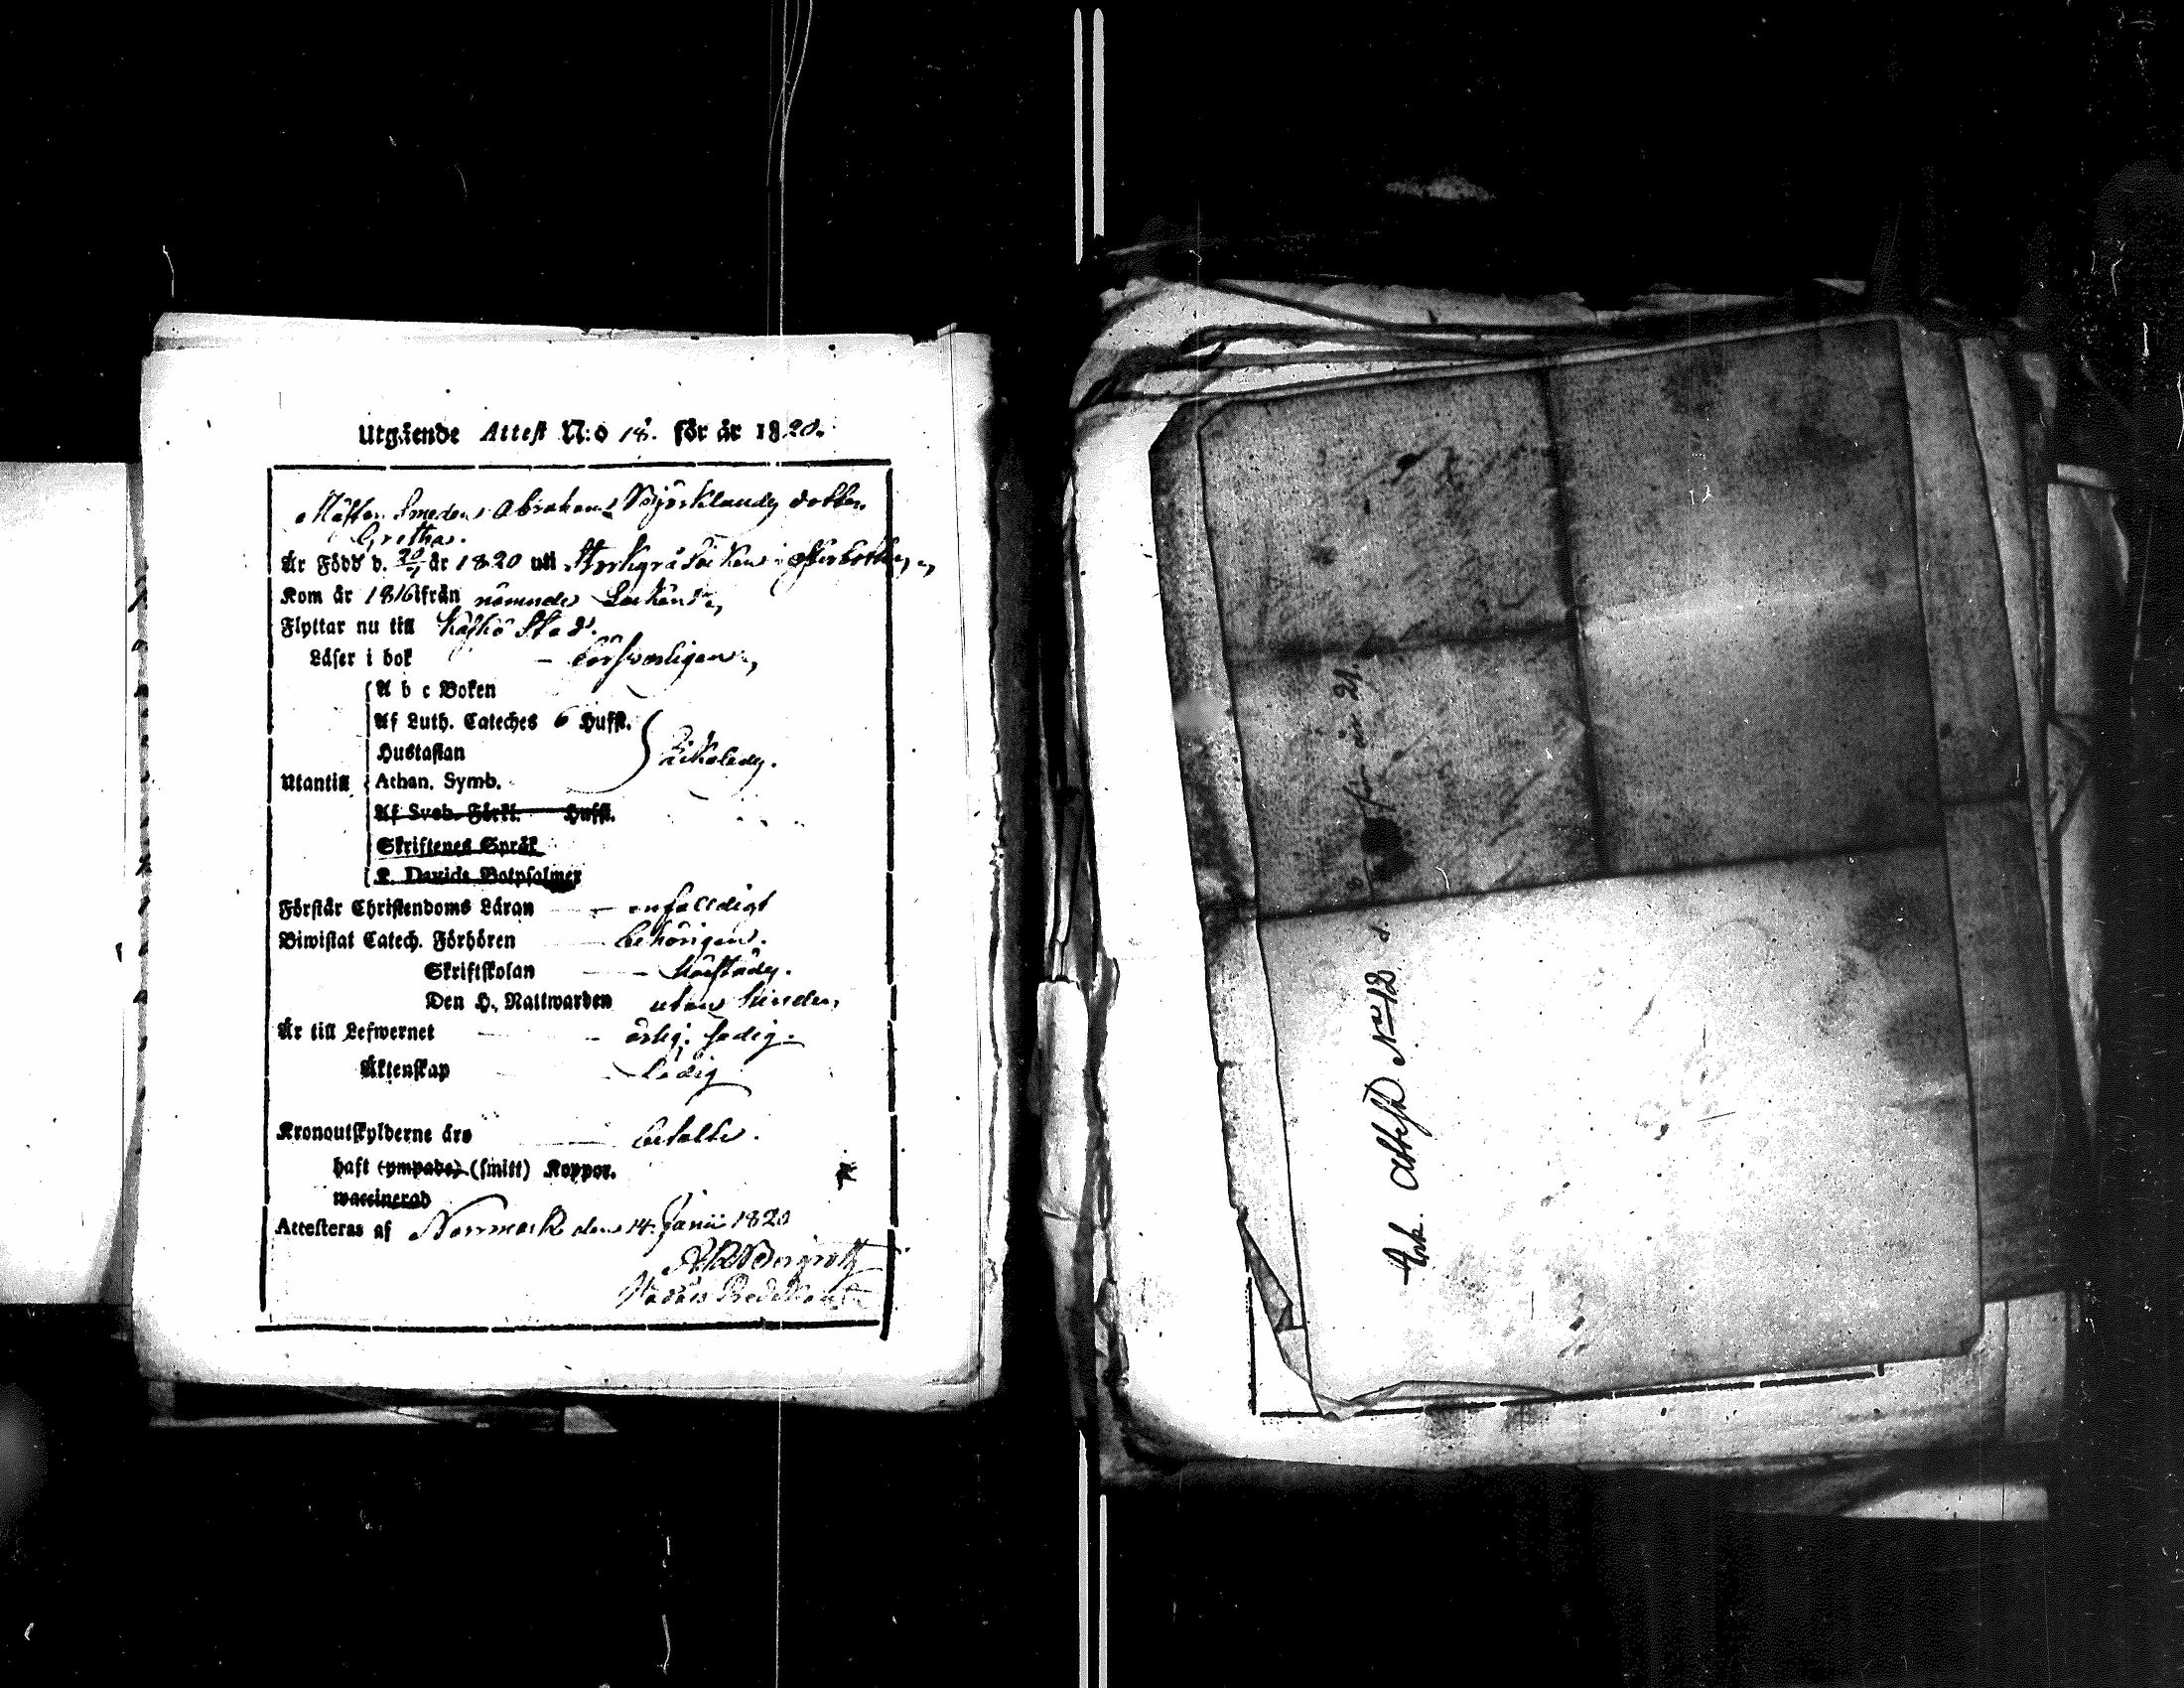 Utgående Attest N:o 18. för år 1820.
Mäster Smeden Abraham Björklunds dotter
Gretha.
Är Född d. 20/ år 1820 uti Storkyrå Socken i Österbotten
Kom år 1816 från nämnde Socken,
Flyttar nu till Kaskö Stad.
Läser i bok - försvarligen,
A b c Boken
Af Luth. Cateches 6 Huffst.
Hustaflan
Utantill Athan. Symb.
Af Sveb. Förkl. Huffst.
Skriftenes Språk
K. Davids Botpsalmer
Förstår Christendoms Läran - enfaldigt
Biwistat Catech. Förhören - behörigen.
Skriftskolan -
Den H. Nattwarden utan hinder,
Är till Lefwernet - ärlig:
Äktenskap - Ledig
Kronoutskylderne äro - betalte.
haft (ympade) (smitt) Koppor.
waccinerad
Attesteras af Norrmark den 14. Junii 1820
Ank. Attest N:o 12 d. 8/ för år 21.